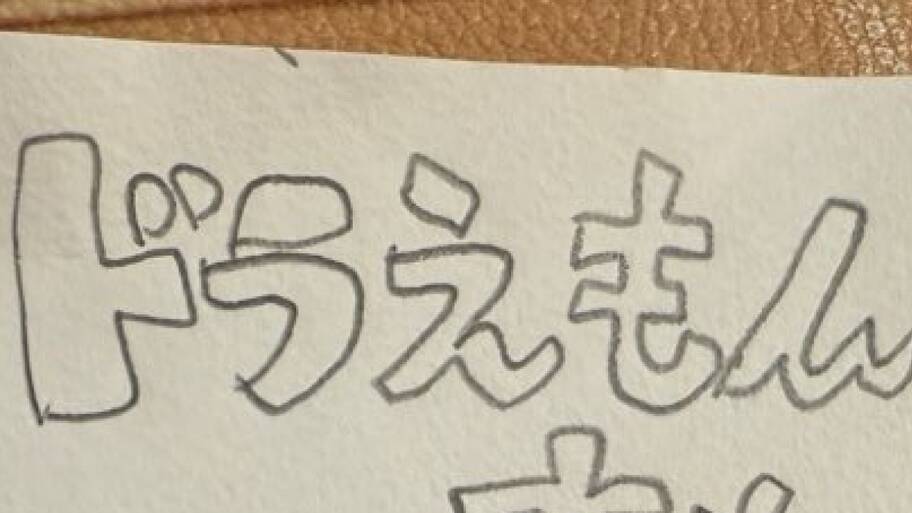 ドラえもん